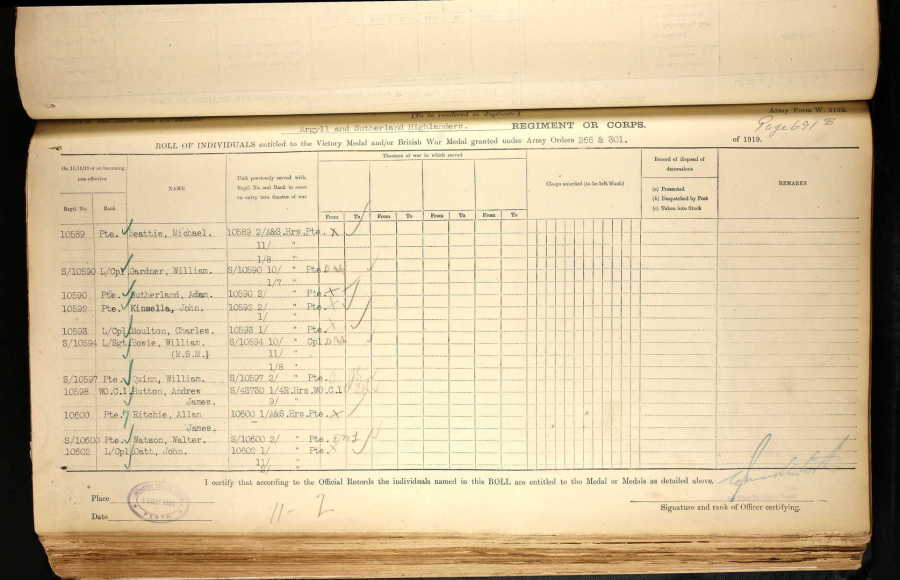 (To be rendered in duplicate)
Army Form W. 5102.
Argyll and Sutherland Highlanders. REGIMENT OR CORPS.
Page 691 B
ROLL OF INDIVIDUALS entitled to the Victory Medal and/or British War Medal granted under Army Orders 266 & 301. of 1919.
On 11/11/18 or on becoming non-effective
Regtl. No. Rank
NAME
Unit previously served with Regtl. No. and Rank in same on entry into theatre of war
Theatres of war in which served
From To From To From To From To From To
Clasps awarded (to be left blank)
Record of disposal of decorations
(a) Presented
(b) Despatched by Post
(c) Taken into Stock
REMARKS
10589 Pte. Beattie, Michael. 10589 2/A&S.Hrs.Pte. X
11/ "
1/8 "
S/10590 L/Cpl Gardner, William. S/10590 10/ " Pte.
1/7 "
10590 Pte. Sutherland, Adam. 10590 2/ " Pte. X
10592 Pte. Kinsella, John. 10592 2/ " Pte. X
1/ "
10593 L/Cpl Moulton, Charles. 10593 1/ " Pte. X
S/10594 L/Sgt Bowie, William. S/10594 10/ " Cpl
(M.S.M.) 11/ "
1/8 "
S/10597 Pte. Quinn, William. S/10597 2/ " Pte.
10598 WO.C.1 Hutton, Andrew 1/4R.Hrs.WO.C.1
James. 9/ "
10600 Pte. Ritchie, Allan 10600 1/A&S.Hrs.Pte. X
James.
S/10600 Pte. Watson, Walter. S/10600 2/ " Pte.
10602 L/Cpl Catt, John. 10602 1/ " Pte. X
11/ "
I certify that according to the Official Records the individuals named in this ROLL are entitled to the Medal or Medals as detailed above.
Place
PERTH
Date
11-2
Signature and rank of Officer certifying.